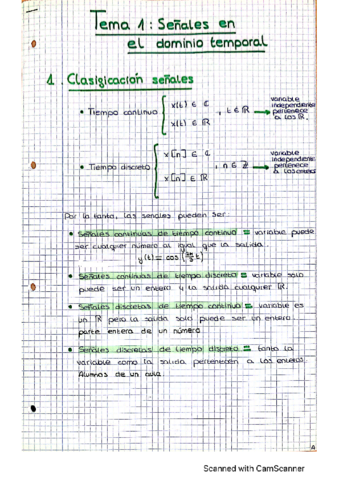 Tema 1: Señales en
el dominio temporal
1 Clasigicación señales
• Tiempo continuo { x(t) ∈ ℂ
x(t) ∈ ℝ , t ∈ ℝ → variable independiente pertenece a los ℝ.
• Tiempo discreto { x[n] ∈ ℂ
x[n] ∈ ℝ , n ∈ ℤ → variable independiente pertenece a los enteros
Por lo tanto, las señales pueden ser:
• Señales continuas de tiempo continuo = variable puede
ser cualquier número al igual que la salida.
y(t) = cos
• Señales continuas de tiempo discreto = variable solo
puede ser un entero y la salida cualquier ℝ.
• Señales discretas de tiempo continuo = variable es
un ℝ pero la salida solo puede ser un entero.
parte entera de un número
• Señales discretas de tiempo discreto = tanto la
variable como la salida pertenecen a los enteros.
Alumnos de un aula.
Scanned with CamScanner